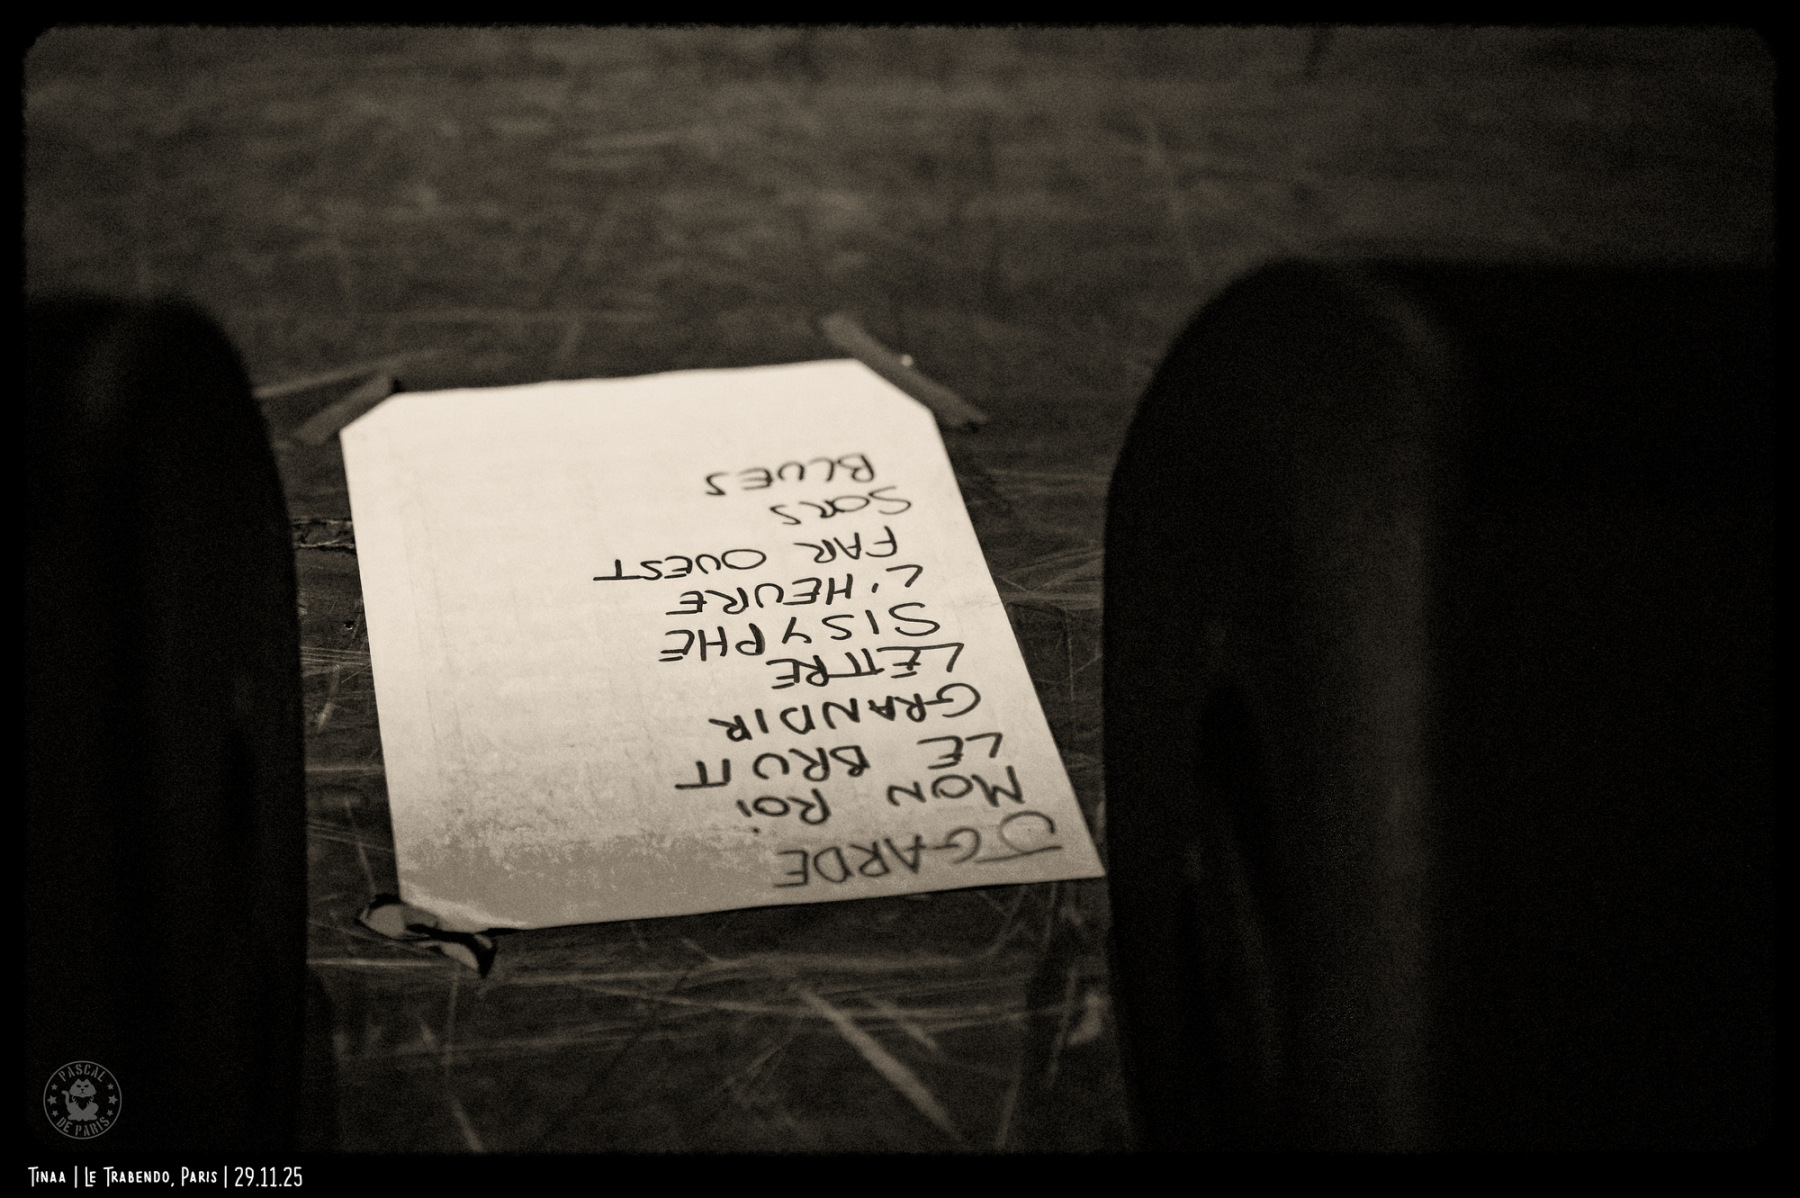 JGARDE
MON ROI
LE BRUIT
GRANDIR
LETTRE
SISYPHE
L'HEURE
FAR OUEST
SORS
BLUES
PASCAL
DE PARIS
TINAA | LE TRABENDO, PARIS | 29.11.25